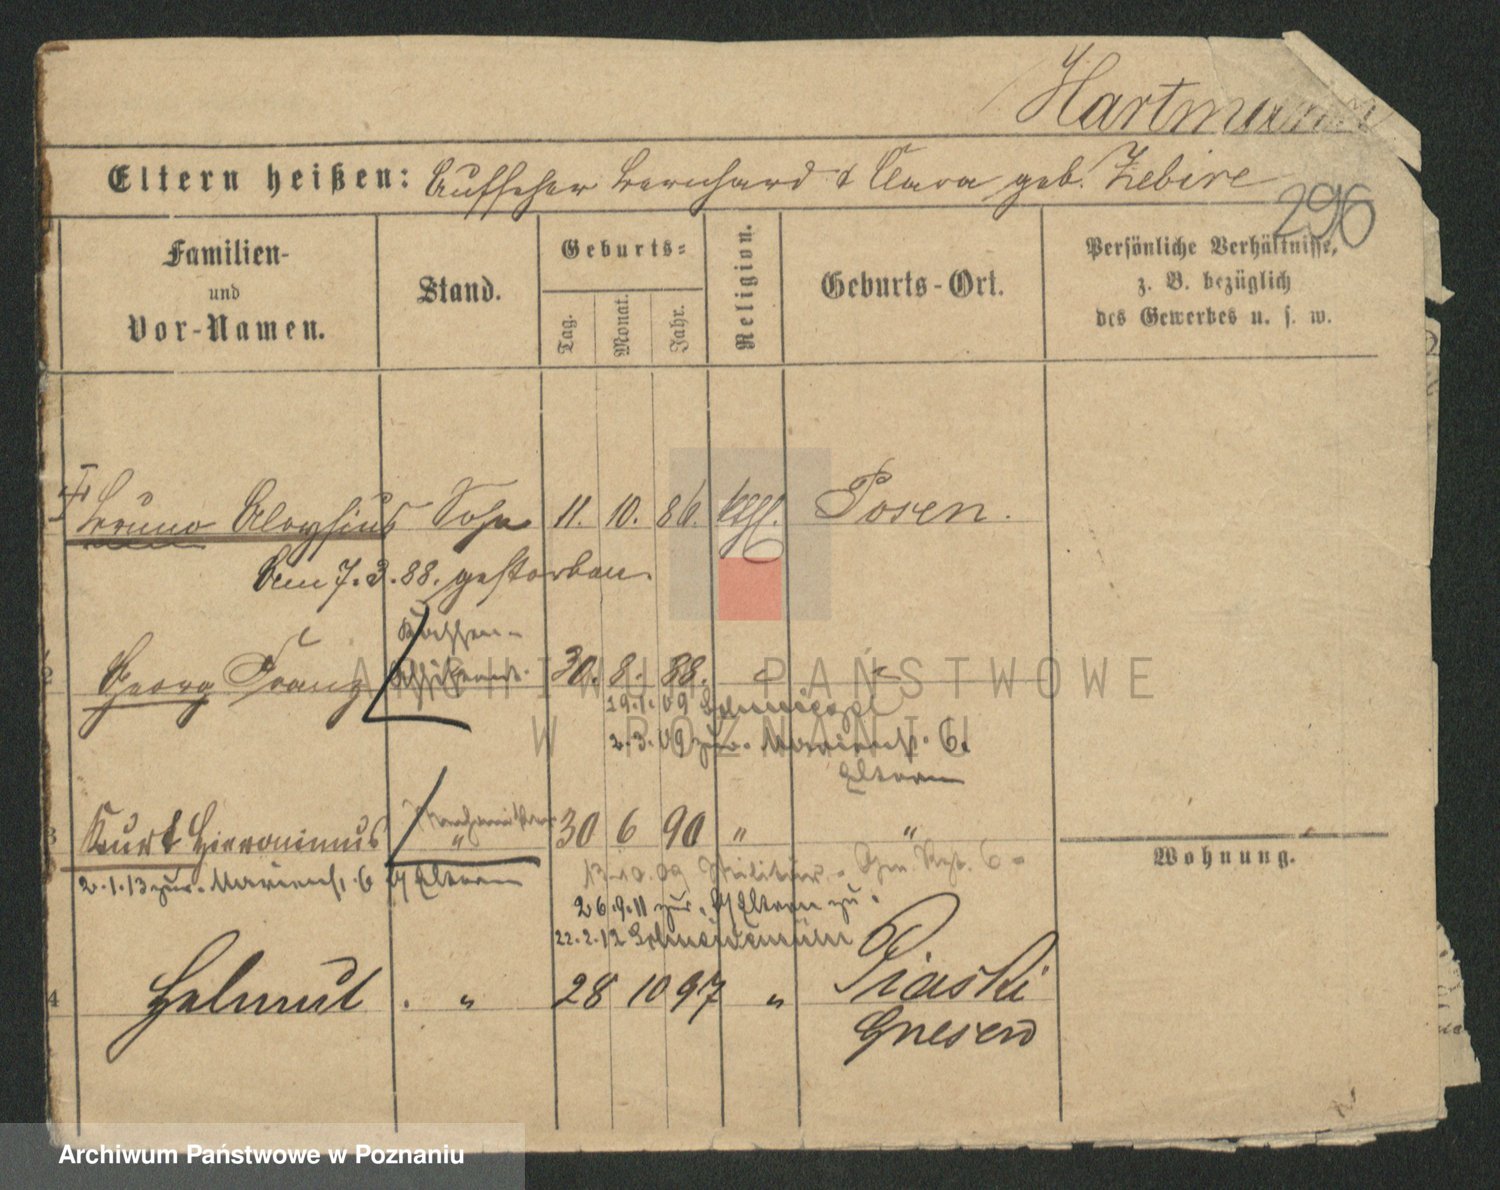 Hartmann
Eltern heißen: Aufseher Bernhard & Clara geb. Zebire
296
Familien-
und
Vor-Namen.
Stand.
Geburts-
Tag.
Monat.
Jahr.
Religion.
Geburts-Ort.
Persönliche Verhältnisse,
z. B. bezüglich
des Gewerbes u. s. w.
Bruno Aloysius Sohn 11. 10. 86. kth. Posen.
Am 7.3.88. gestorben.
2 Georg Franz 30. 8. 88. " "
19.1.09
2.3.09 zur. Marienst. 6.
Eltern
3 Kurt Hieronimus " 30 6 90 " "
2.1.13 zur. Marienst. 6 b/ Eltern
13.10.09 Militär. 6
26.9.11 zur. b/ Eltern zu
22.2.12 Schneidemühl
4 Helmut " 28 10 97 " Piaski
Gnesen
Wohnung.
ARCHIWUM PAŃSTWOWE
W POZNANIU
Archiwum Państwowe w Poznaniu